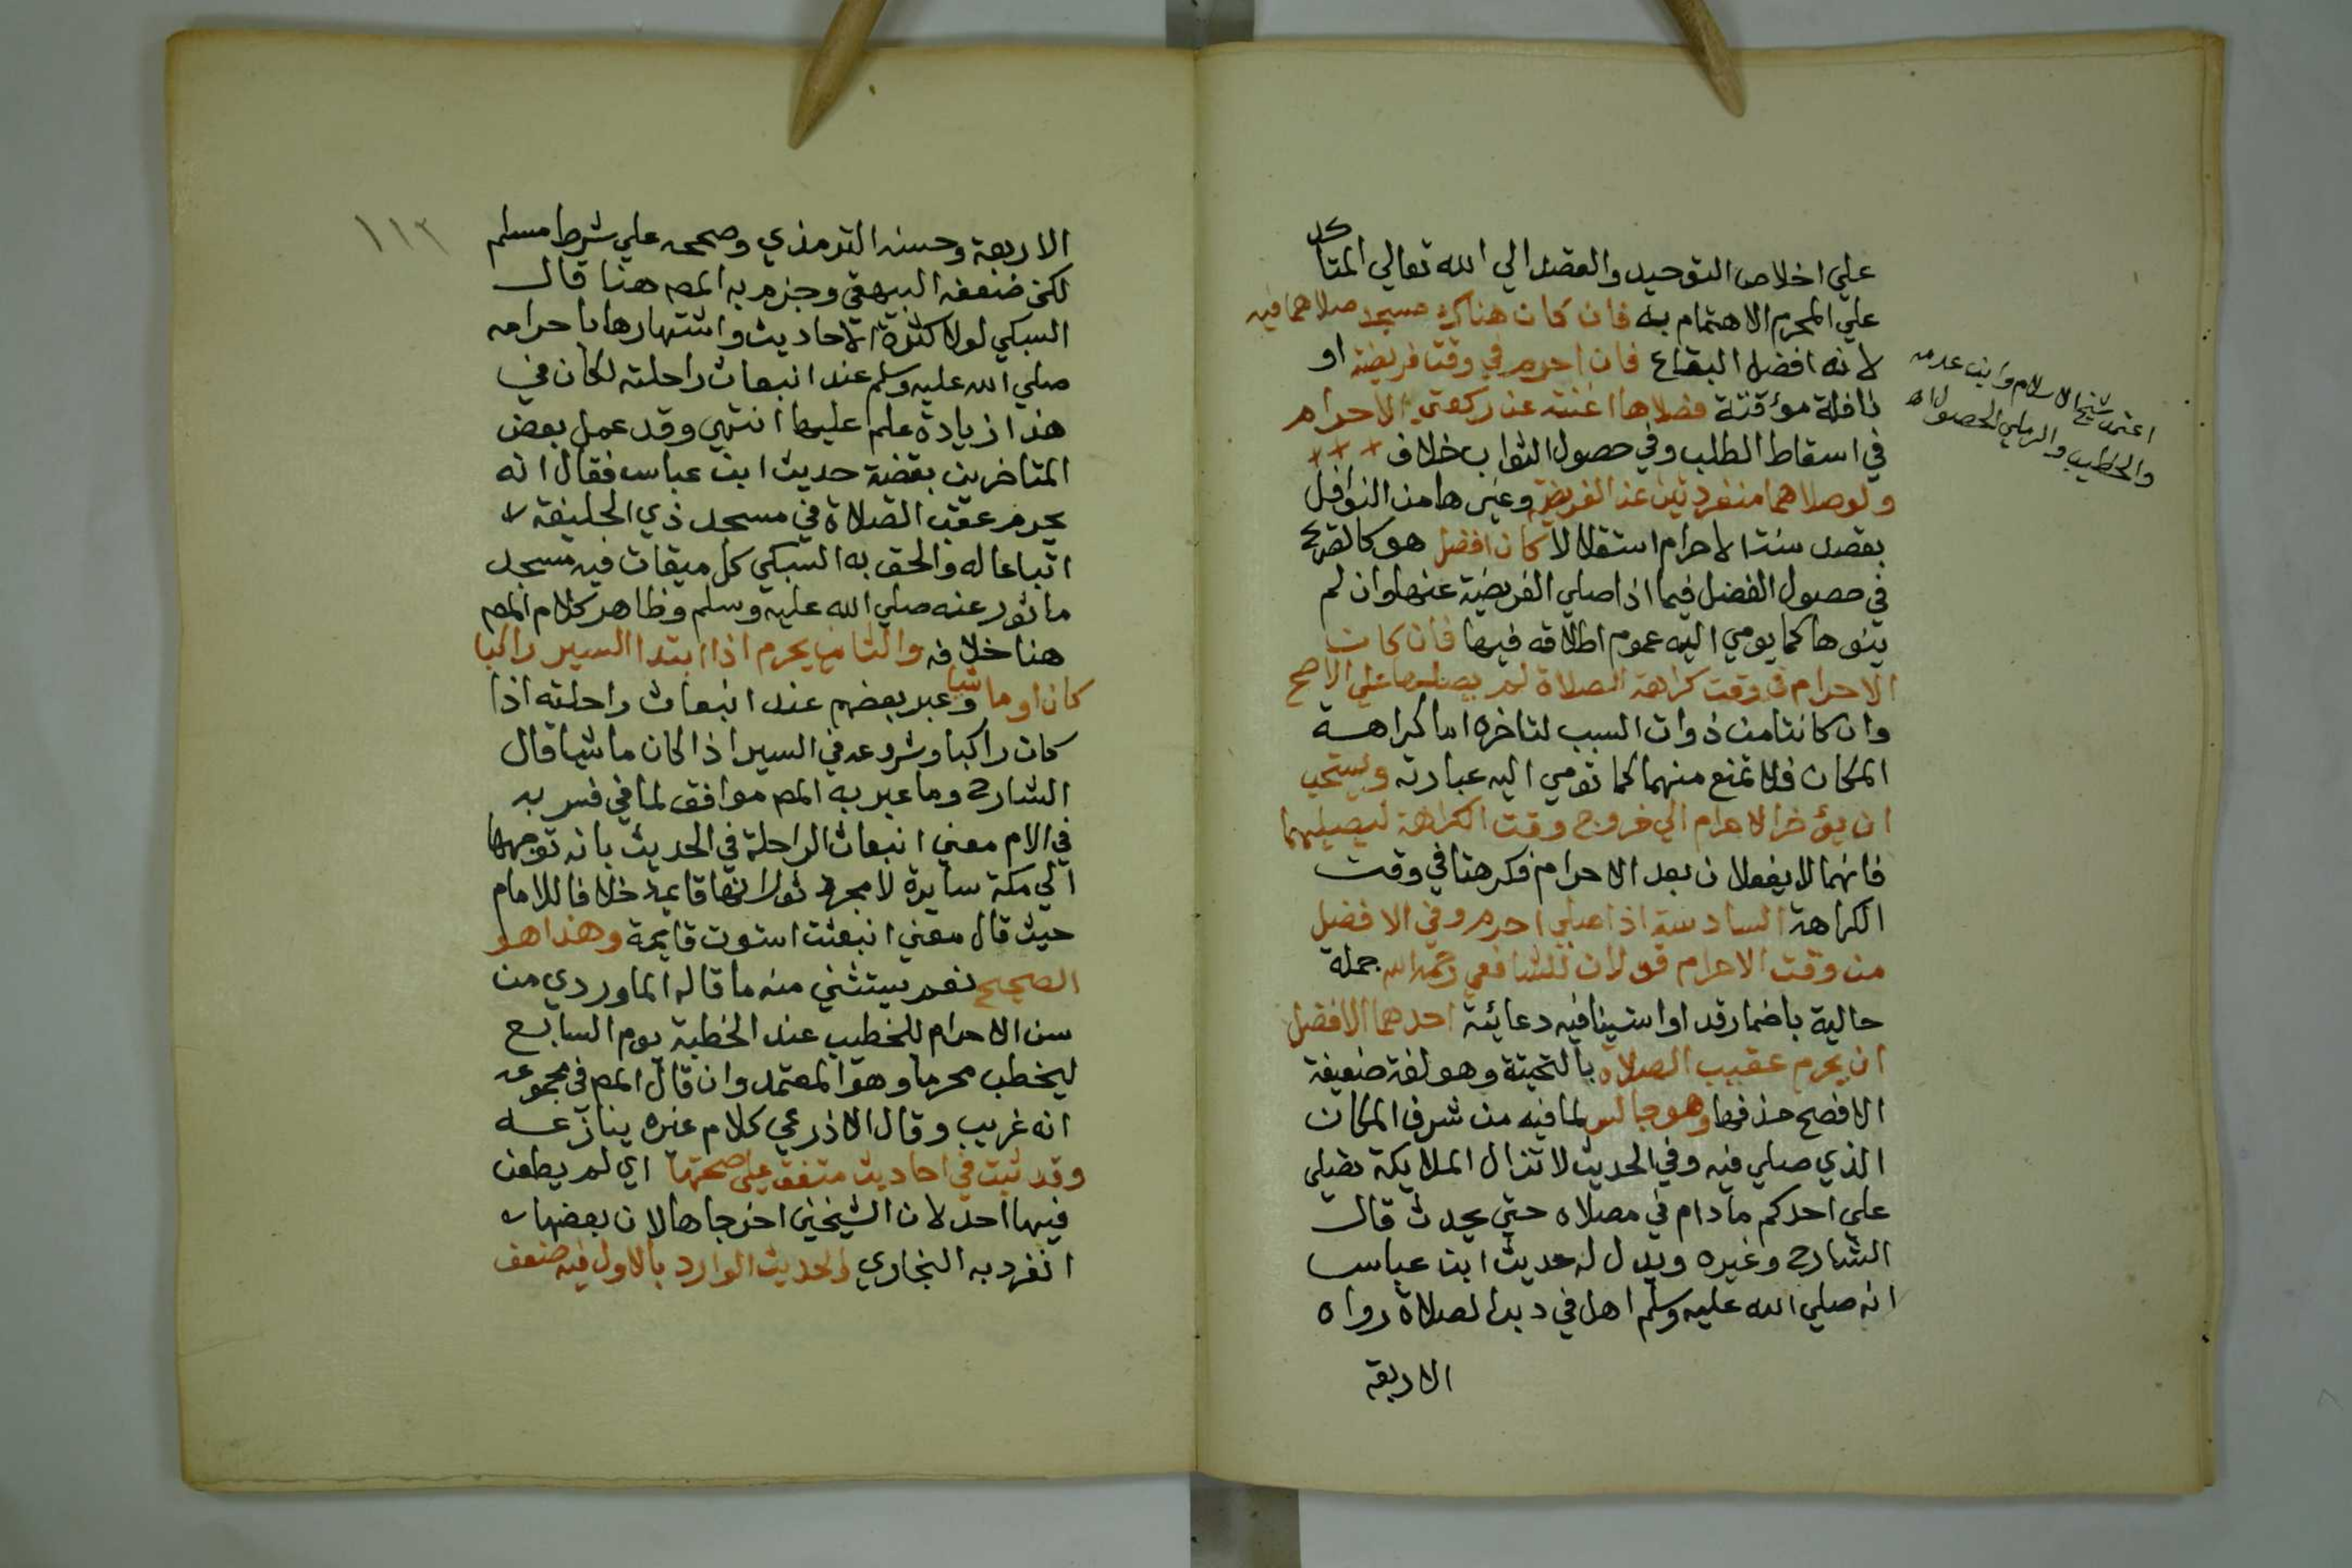 علي اخلاص التوحيد والقصد الي الله تعالي المتاكد
علي المحرم الاهتمام به فان كان هناك مسجد صلاهما فيه
لانه افضل البقاع فان احرم في وقت فريضة او
نافلة مؤقتة فصلاها اغنته عن ركعتي الاحرام
في اسقاط الطلب وفي حصول الثواب خلاف
ولو صلاهما منفردتين عن الفريضة وغيرها من النوافل
بقصد سنة الاحرام استقلالا كان افضل هو كالصريح
في حصول الفضل فيما اذا صلي الفريضة عنها وان لم
ينوها كما يومي اليه عموم اطلاقه فيها فان كان
الاحرام في وقت كراهة الصلاة لم يصلهما علي الاصح
وان كانتا من ذوات السبب لتاخره اما كراهة
المكان فلا تمنع منهما كما تومي اليه عبارته ويستحب
ان يؤخر الاحرام الي خروج وقت الكراهة ليصليهما
فانهما لا يفعلان بعد الاحرام فكرهتا في وقت
الكراهة السادسة اذا صلي احرم وفي الافضل
من وقت الاحرام قولان للشافعي رحمه الله جملة
حالية باضمار قد او استينافيه دعائية احدهما الافضل
ان يحرم عقيب الصلاة بالتحتية وهو لغة ضعيفة
الافصح حذفها وهو جالس لما فيه من شرف المكان
الذي صلي فيه وفي الحديث لا تزال الملايكة تصلي
علي احدكم ما دام في مصلاه حتي يحدث قال
الشارح وغيره ويدل له حديث ابن عباس
انه صلي الله عليه وسلم اهل في دبر الصلاة رواه
الاربعة
اعتمد شيخ الاسلام وابن علامه
والخطيب والرملي الحصول اه
١١٢
الاربعة وحسنه الترمذي وصححه علي شرط مسلم
لكن ضعفه البيهقي وجزم به المص هنا قال
السبكي لولا كثرة الاحاديث واشتهارها باحرامه
صلي الله عليه وسلم عند انبعاث راحلته لكان في
هذا زيادة علم عليها انتهي وقد عمل بعض
المتاخرين بقضية حديث ابن عباس فقال انه
يحرم عقب الصلاة في مسجد ذي الحليفة
اتباعا له والحق به السبكي كل ميقات فيه مسجد
ماثور عنه صلي الله عليه وسلم وظاهر كلام المص
هنا خلافه والثاني يحرم اذا ابتدا السير راكبا
كان او ماشيا وعبر بعضهم عند انبعاث راحلته اذا
كان راكبا وشروعه في السير اذا كان ماشيا قال
الشارح وما عبر به المص موافق لما في فسر به
في الام معني انبعاث الراحلة في الحديث بانه توجهها
الي مكة سايرة لا مجرد ثورانها قايمة خلافا للامام
حيث قال معني انبعثت استوت قايمة وهذا هو
الصحيح نعم يستثني منه ما قاله الماوردي من
سن الاحرام للخطيب عند الخطبة يوم السابع
ليخطب محرما وهو المعتمد وان قال المص في مجموعه
انه غريب وقال الاذرعي كلام غيره ينازعه
وقد ثبت في احاديث متفق علي صحتها اي لم يطعن
فيها احد لان الشيخين اخرجاها لان بعضها
انفرد به البخاري والحديث الوارد بالاول فيه ضعف